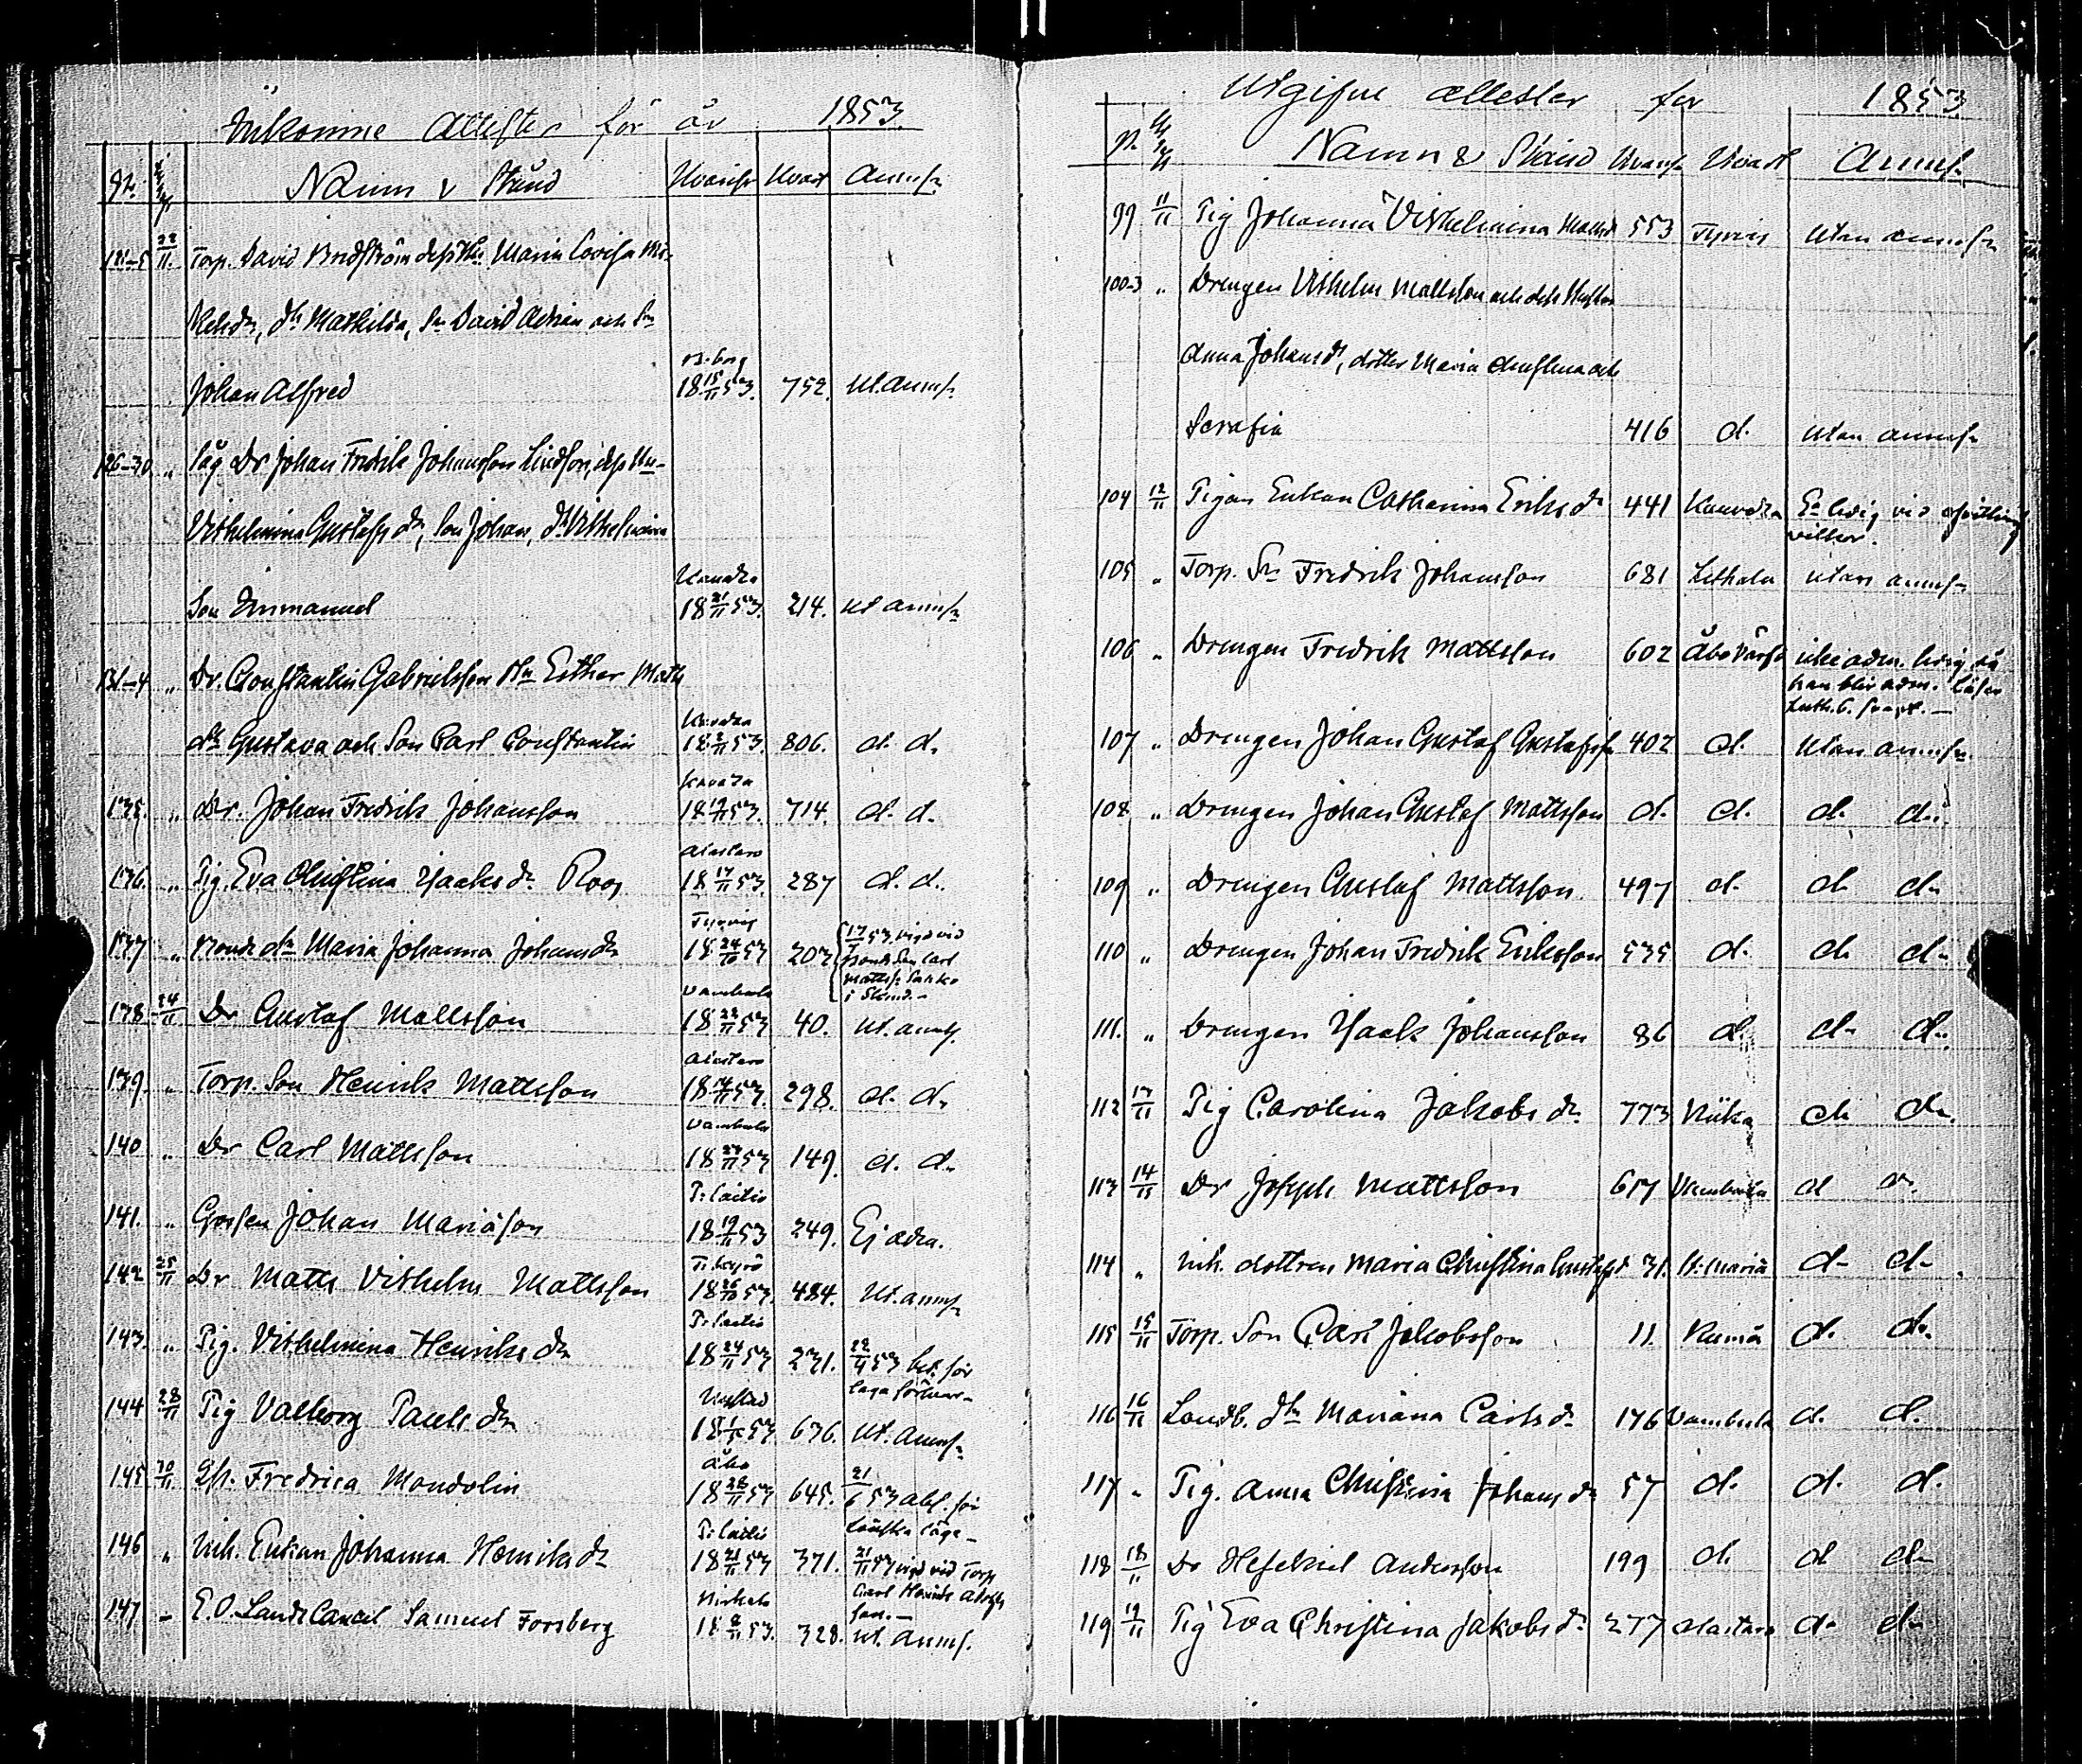 Inkomne Attester för år 1853.
N. Namn & Stånd Hvarifr. Hvart Anmf.
121-5 22/11 Torp. David Brodström dess Hu. Maria Lovisa
dr. Mathilda, Sn David Adrian och Sn
Johan Alfred B.borg 18 15/11 53. 752. ut. anmf.
126-30 „ Johan Fredrik Johansson Lindfors, dess Hu
Vilhelmina Gustafs dr, Son Johan, dr Vilhelmina
Son Immanuel 18 21/11 53. 214. ut anmf.
131-4 „ Dr. Constantin Gabrielsson Hu Esther Matts
dr Gustava och Son Carl Constantin 18 2/11 53. 806. d. d.
135. „ Dr. Johan Fredrik Johansson 18 19/11 53. 714. d. d.
136. „ Pig. Eva Christina Isaks dr Roos Alastaro 18 17/11 53. 287 d. d.
137 „ Bonde dr Maria Johanna Johans dr Tyrvis 18 24/10 53 203 17/7 53. vigd vid
Bonde Son Carl
Matts
138 24/11 Dr Gustaf Mattsson Vambula 18 22/11 53 40. ut. anmf.
139. „ Torp. Son Henrik Mattsson Alastaro 18 14/11 53. 298. d. d.
140 „ Dr Carl Mattsson Vambula 18 24/11 53 149. d. d.
141. „ Gossen Johan Mariason 18 19/11 53 249. Ej adm.
142 25/11 Dr Matts Vilhelm Mattsson T. kyrö 18 26/10 53. 484. ut. anmf.
143. „ Pig. Vilhelmina Henriks dr 18 24/11 53 231. 22/4 53 bet. för
laga förhör
144 28/11 Pig Valborg Pauls dr Nystad 53 676. ut. anmf.
145 30/11 Fredrica Mondolin Åbo 18 28/11 53 645. 21/6 53 abs. för
146 „ Inh. Enkan Johanna Henriks dr 18 21/11 53 371. 21/11 53 vigd vid Torp
Carl Henrik Adolfs
son.
147 „ E. O. Landt Cancel. Samuel Forsberg 18 8/11 53. 328. ut. anmf.
Utgifne attester för 1853
N. Namn & Stånd Hvarifr. Hvart Anmf.
99 11/11 Pig Johanna Vilhelmina Matts dr 553 Tyrvis utan anmf.
100-3 „ Drengen Vilhelm Mattsson och dess Hustru
Anna Johans dr, dotter Maria Christina och
Serafia 416 d. utan anmf.
104 12/11 Pigan Enkan Catharina Eriks dr 441 Er ledig vid
vilkor.
105 „ Torp. Sn Fredrik Johansson 681 Lethala utan anmf.
106 „ Drengen Fredrik Mattsson 602 Åbo icke adm. ledig då
han blir adm. Läser
Luth. C.
107 „ Drengen Johan Gustaf Gustafsson 402 d. utan anmf.
108 „ Drengen Johan Gustaf Mattsson d. d. d. d.
109 „ Drengen Gustaf Mattsson. 497 d. d. d.
110 „ Drengen Johan Fredrik Eriksson 535 d. d. d.
111. „ Drengen Isaak Johansson 86 d. d. d.
112 13/11 Pig Carolina Jakobs dr 773 Kiika d. d.
113 14/11 Dr Joseph Mattsson 617 Vambula d d.
114 „ Inh. dottren Maria Christina Gustafs d 31. St: Mariä d. d.
115 15/11 Torp. Son Carl Jakobsson 11. Kumå d. d.
116 16/11 Landb. dr Mariana Carls dr 176 Vambula d. d.
117 „ Pig. Anna Christina Johans dr 57 d. d. d.
118 18/11 Dr Hesekiel Andersson 199 d. d d.
119 19/11 Pig Eva Christina Jakobs dr 277 Alastaro d. d.